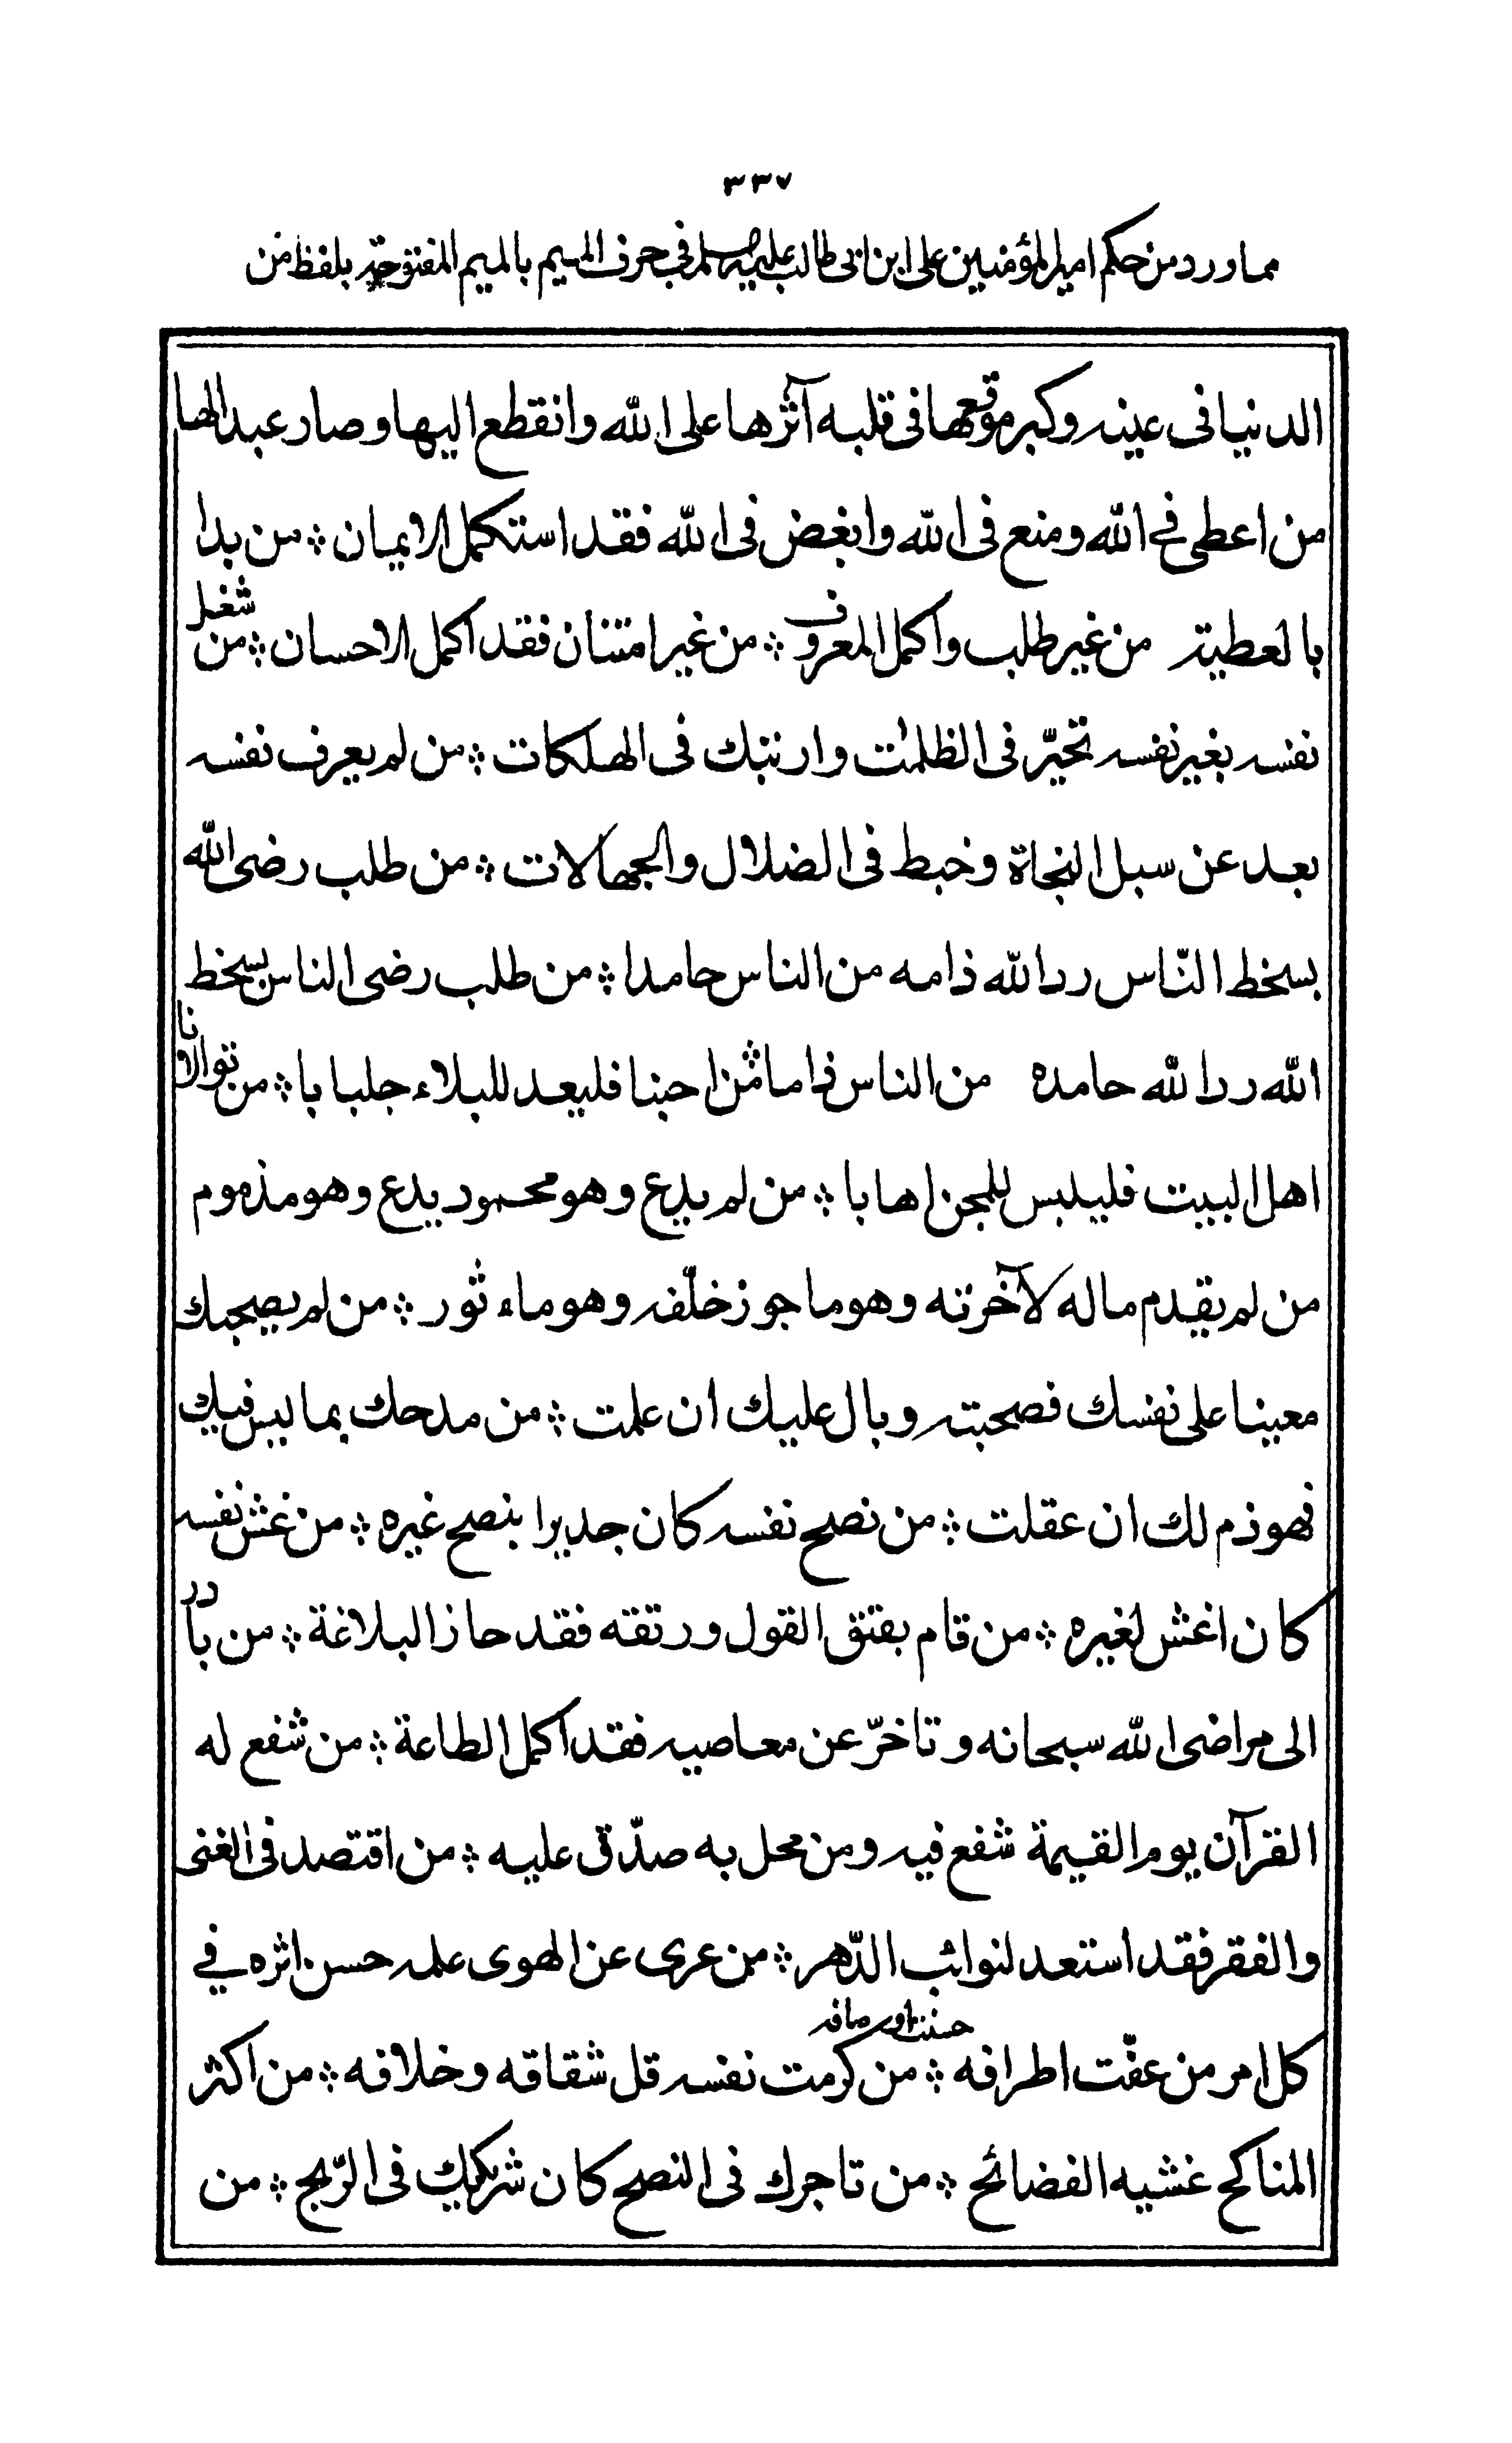 ٣٣٧
مما ورد من حكم امير المؤمنين على ابن ابى طالب عليه صلم فى حرف الميم بالميم المفتوحة بلفظ من
الدنيا فى عينه وكبر موقعها فى قلبه آثرها على الله وانقطع اليها وصار عبدا لها
من اعطى فى الله ومنع فى الله وابغض فى الله فقد استكمل الايمان ؞ من بدا
بالعطية من غير طلب واكمل المعروف ؞ من غير امتنان فقد اكمل الاحسان ؞ من شغل
نفسه بغير نفسه تحيّر فى الظلمٰت وارتبك فى الهلكات ؞ من لم يعرف نفسه
بعد عن سبل النجاة وخبط فى الضلال والجهالات ؞ من طلب رضى الله
بسخط النّاس رد الله ذامه من الناس حامدا ؞ من طلب رضى الناس بسخط
الله رد الله حامده من الناس ذاما ؞ من احبنا فليعد للبلاء جلبابا ؞ من توالانا
اهل البيت فليلبس للمحن اهابا ؞ من لم يدع وهو محمود يدع وهو مذموم
من لم يقدم ماله لآخرته وهو ماجوز خلّفه وهو ماءثور ؞ من لم يصحبك
معينا على نفسك فصحبته وبال عليك ان علمت ؞ من مدحك بما ليس فيك
فهو ذم لك ان عقلت ؞ من نصح نفسه كان جديرا بنصح غيره ؞ من غش نفسه
كان اغش لغيره ؞ من قام بفتق القول ورتقه فقد حاز البلاغة ؞ من بادر
الى مراضى الله سبحانه وتاخرّ عن معاصيه فقد اكمل الطاعة ؞ من شفع له
القرآن يوم القيمة شفع فيه ومن محل به صدّق عليه ؞ من اقتصد فى الغنى
والفقر فقد استعد لنوائب الدّهر ؞ من عرى عن الهوى عمله حسن اثره فى
كل امر من عفّت اطرافه حسنت اوصافه ؞ من كرمت نفسه قل شقاقه وخلافه ؞ من اكثر
المناكح غشيه الفضائح ؞ من تاجرك فى النصح كان شريكك فى الرّبح ؞ من